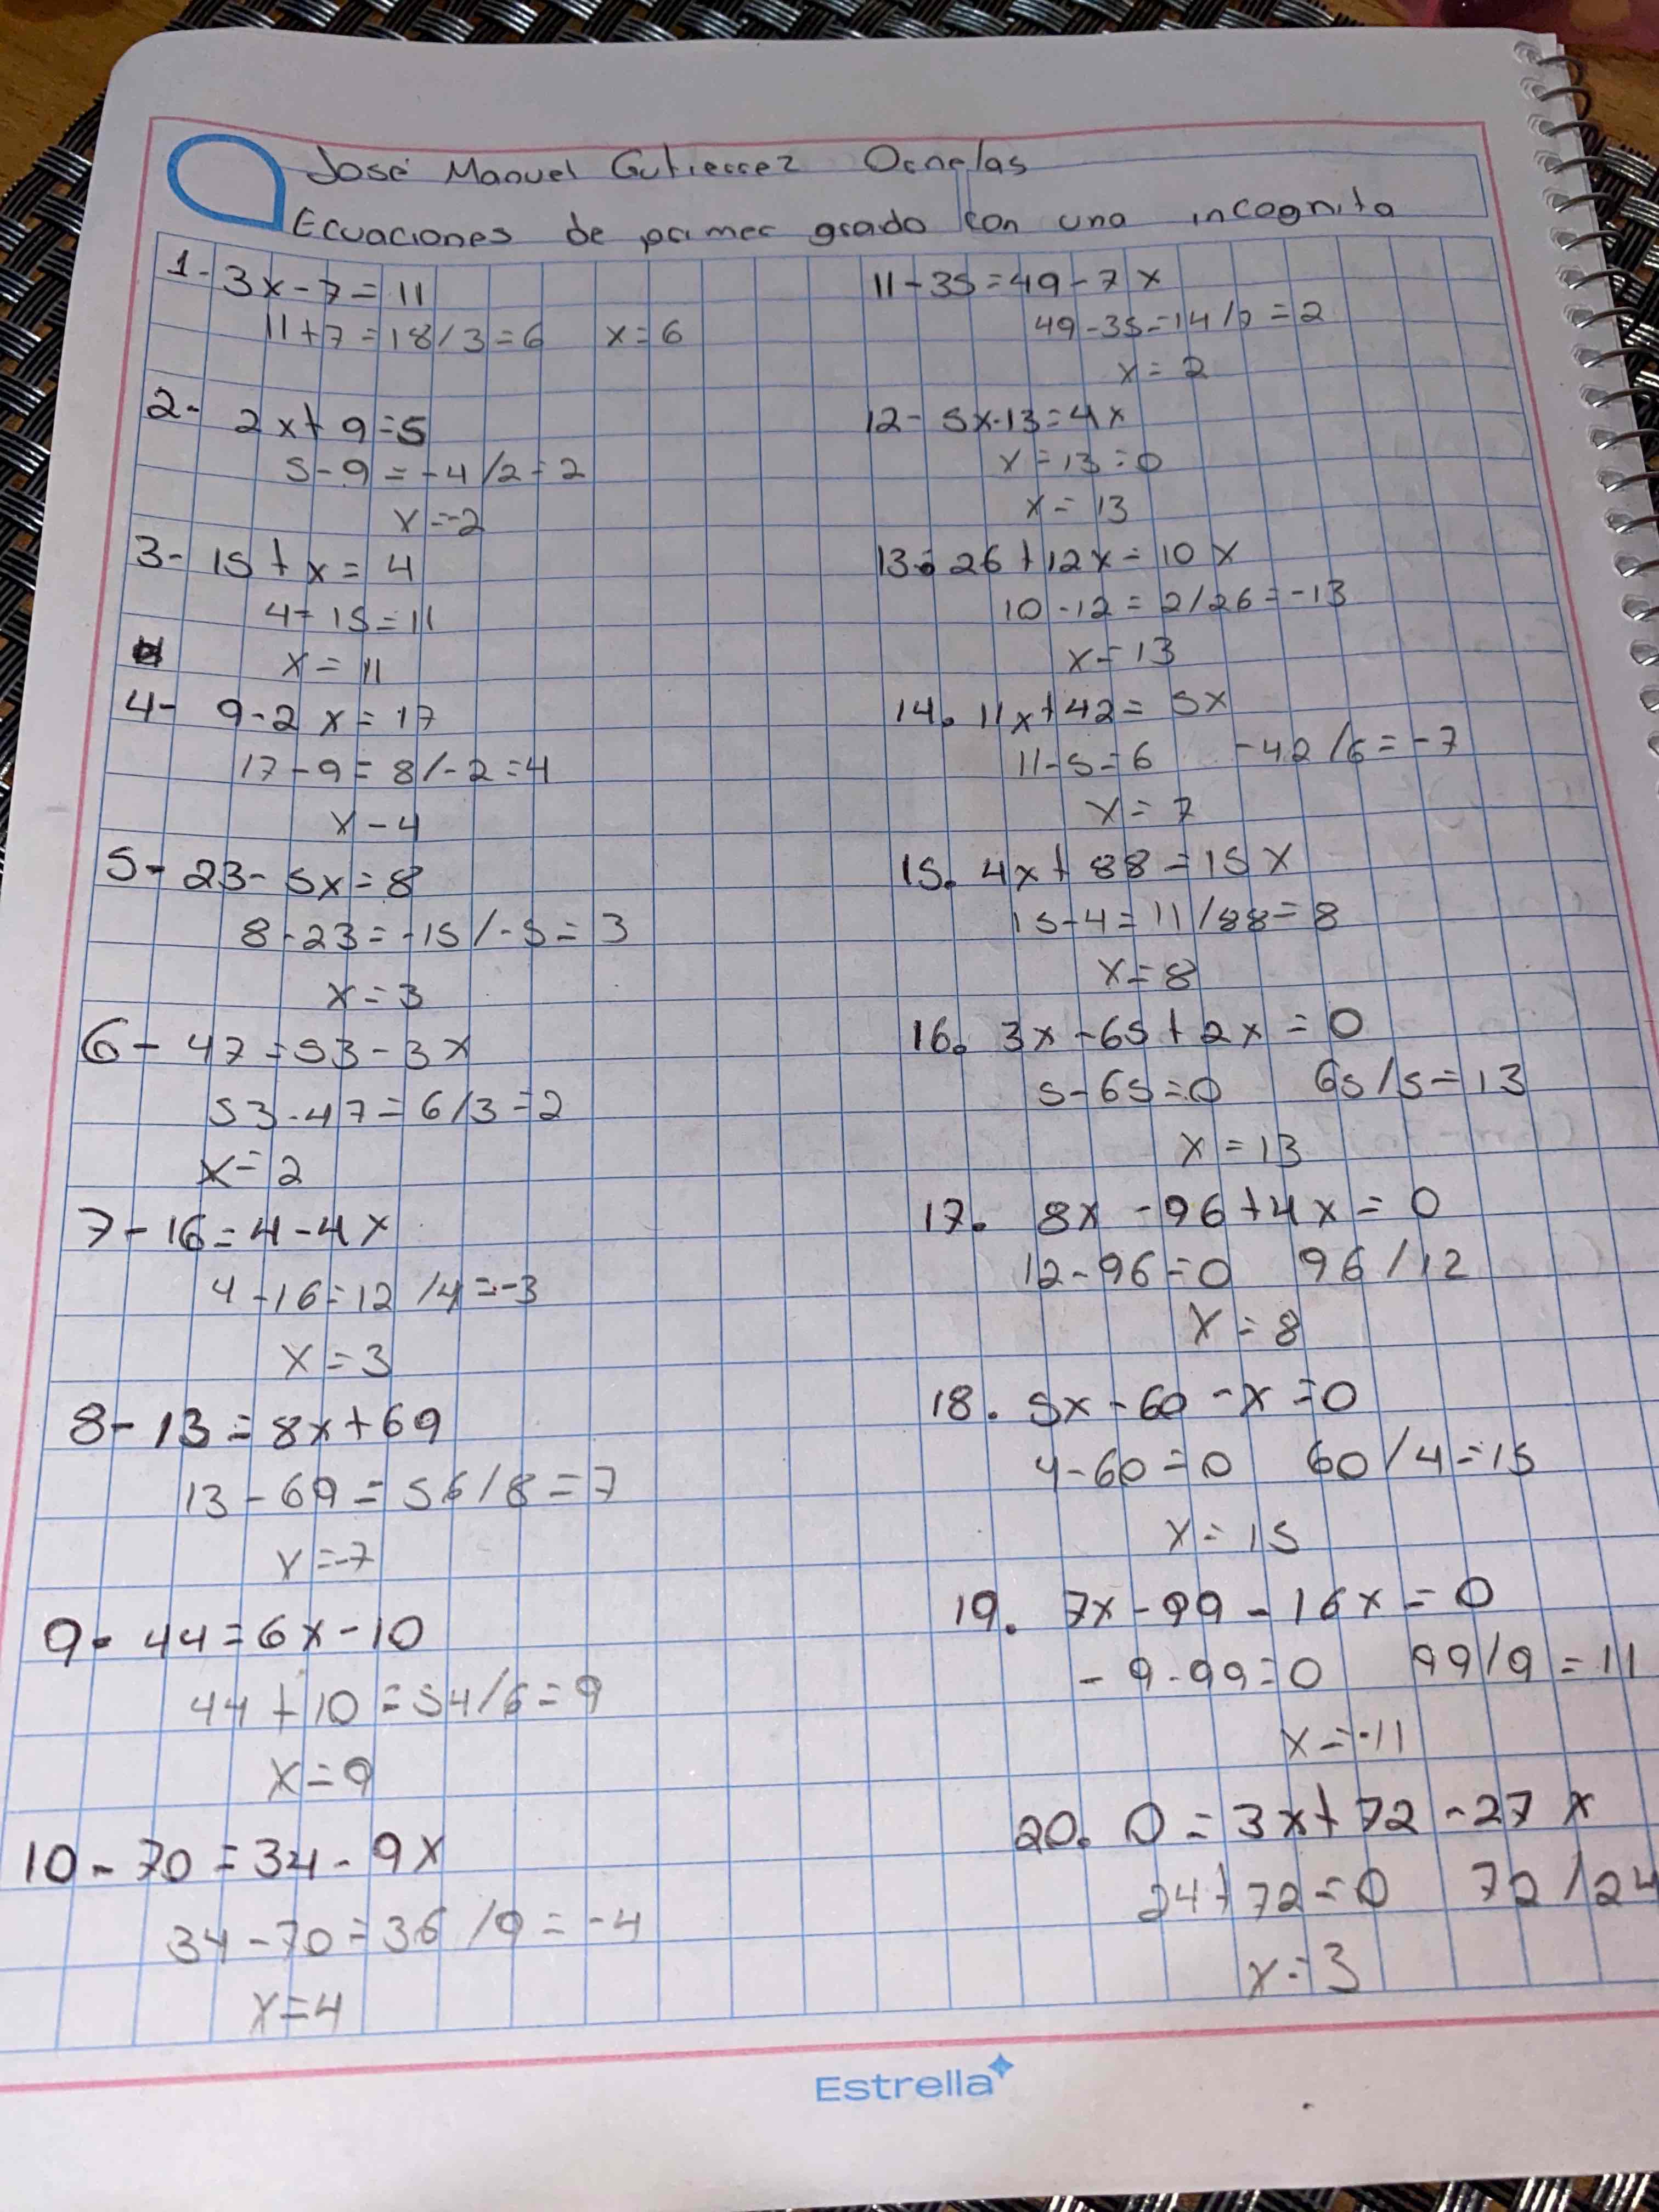 José Manuel Gutierrez Ornelas
Ecuaciones de primer grado con una incognita
1- 3x-7=11
11+7=18/3=6 x=6
2- 2x+9=5
5-9=-4/2=2
x=-2
3- 15+x=4
4-15=11
x=11
4- 9-2x=17
17-9=8/-2=4
x-4
5- 23-5x=8
8-23=-15/-5=3
x=3
6- 47=53-3x
53-47=6/3=2
x=2
7- 16=4-4x
4-16=12/4=-3
x=3
8- 13=8x+69
13-69=56/8=7
x=-7
9- 44=6x-10
44+10=54/6=9
x=9
10- 70=34-9x
34-70=36/9=-4
x=4
11-35=49-7x
49-35=14/7=2
x=2
12- 5x-13=4x
x=13=0
x=13
13. 26+12x=10x
10-12=2/26=-13
x=13
14. 11x+42=5x
11-5=6 -42/6=-7
x=7
15. 4x+88=15x
15-4=11/88=8
x=8
16. 3x-65+2x=0
5-65=0 65/5=13
x=13
17. 8x-96+4x=0
12-96=0 96/12
x=8
18. 5x-60-x=0
4-60=0 60/4=15
x=15
19. 7x-99-16x=0
-9-99=0 99/9=11
x=-11
20. 0=3x+72-27x
24+72=0 72/24
x=3
Estrella